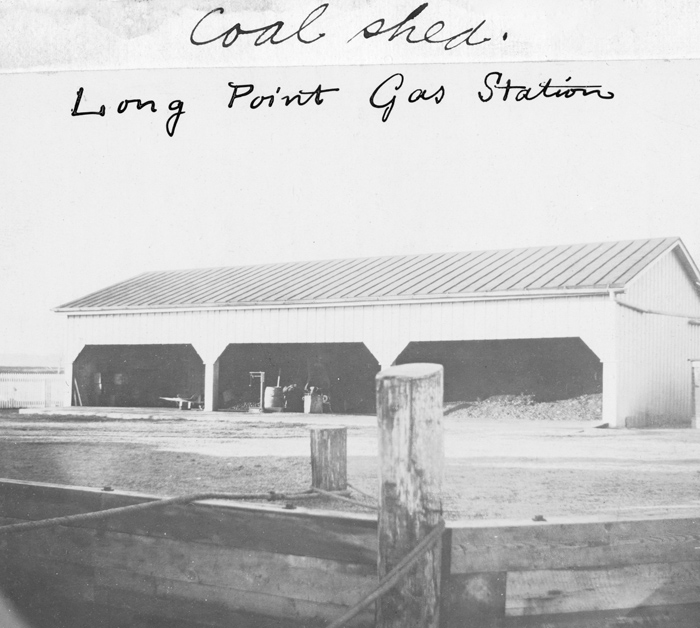 Coal shed.
Long Point Gas Station